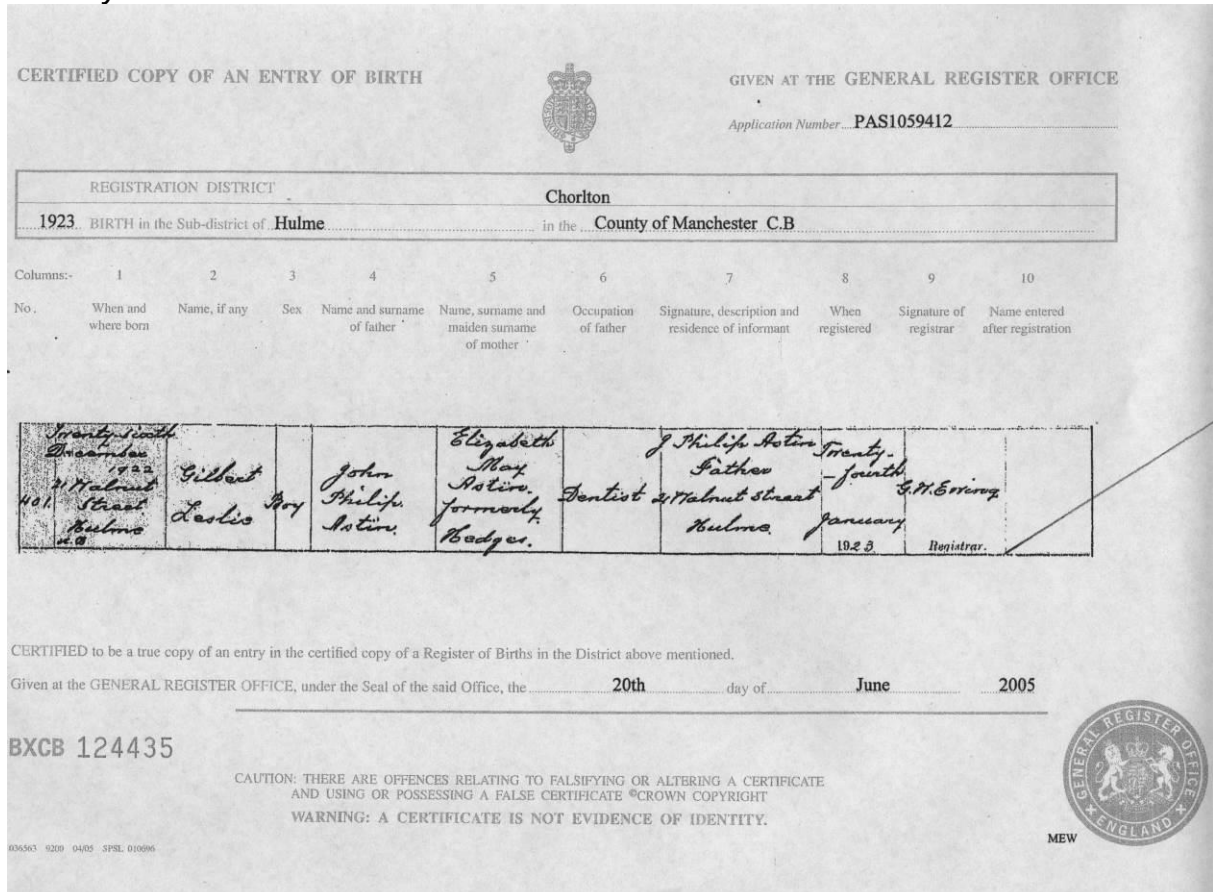 CERTIFIED COPY OF AN ENTRY OF BIRTH
GIVEN AT THE GENERAL REGISTER OFFICE
Application Number PAS1059412
REGISTRATION DISTRICT Chorlton
1923 BIRTH in the Sub-district of Hulme in the County of Manchester C.B
Columns:- 1 2 3 4 5 6 7 8 9 10
No. When and where born
Name, if any
Sex
Name and surname of father
Name, surname and maiden surname of mother
Occupation of father
Signature, description and residence of informant
When registered
Signature of registrar
Name entered after registration
401.
Twenty sixth
December
1922
21 Walnut
Street
Hulme
Gilbert
Leslie
Boy
John
Philip
Astin.
Elizabeth
May
Astin.
formerly
Hedges.
Dentist
J Philip Astin
Father
21 Walnut Street
Hulme
Twenty-
-fourth
January
1923
Registrar.
CERTIFIED to be a true copy of an entry in the certified copy of a Register of Births in the District above mentioned.
Given at the GENERAL REGISTER OFFICE, under the Seal of the said Office, the 20th day of June 2005
BXCB 124435
CAUTION: THERE ARE OFFENCES RELATING TO FALSIFYING OR ALTERING A CERTIFICATE
AND USING OR POSSESSING A FALSE CERTIFICATE ©CROWN COPYRIGHT
WARNING: A CERTIFICATE IS NOT EVIDENCE OF IDENTITY.
GENERAL REGISTER OFFICE
ENGLAND
MEW
036563 9200 04/05 SPSL 010696